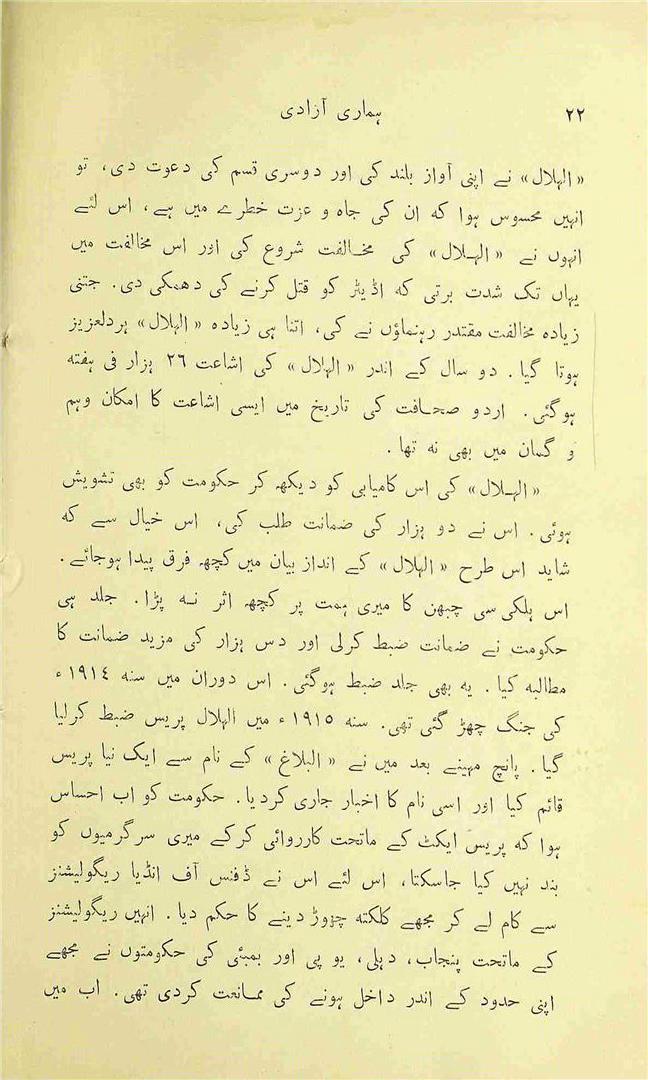 ۲۲
ہماری آزادی
«الہلال» نے اپنی آواز بلند کی اور دوسری قسم کی دعوت دی، تو
انہیں محسوس ہوا کہ ان کی جاہ و عزت خطرے میں ہے، اس لئے
انہوں نے «الہلال» کی مخالفت شروع کی اور اس مخالفت میں
یہاں تک شدت برتی کہ اڈیٹر کو قتل کرنے کی دھمکی دی. جتنی
زیادہ مخالفت مقتدر رہنماؤں نے کی، اتنا ہی زیادہ «الہلال» ہردلعزیز
ہوتا گیا. دو سال کے اندر «الہلال» کی اشاعت ۲٦ ہزار فی ہفتہ
ہوگئی. اردو صحافت کی تاریخ میں ایسی اشاعت کا امکان وہم
و گمان میں بھی نہ تھا.
«الہلال» کی اس کامیابی کو دیکھہ کر حکومت کو بھی تشویش
ہوئی. اس نے دو ہزار کی ضمانت طلب کی، اس خیال سے کہ
شاید اس طرح «الہلال» کے انداز بیان میں کچھہ فرق پیدا ہوجائے.
اس ہلکی سی چبھن کا میری ہمت پر کچھہ اثر نہ پڑا. جلد ہی
حکومت نے ضمانت ضبط کرلی اور دس ہزار کی مزید ضمانت کا
مطالبہ کیا. یہ بھی جلد ضبط ہوگئی. اس دوران میں سنہ ۱۹۱٤ء
کی جنگ چھڑ گئی تھی. سنہ ۱۹۱۵ء میں الہلال پریس ضبط کرلیا
گیا. پانچ مہینے بعد میں نے «البلاغ» کے نام سے ایک نیا پریس
قائم کیا اور اسی نام کا اخبار جاری کردیا. حکومت کو اب احساس
ہوا کہ پریس ایکٹ کے ماتحت کارروائی کرکے میری سرگرمیوں کو
بند نہیں کیا جاسکتا، اس لئے اس نے ڈفنس آف انڈیا ریگولیشنز
سے کام لے کر مجھے کلکتہ چھوڑ دینے کا حکم دیا. انہیں ریگولیشنز
کے ماتحت پنجاب، دہلی، یو پی اور بمبئی کی حکومتوں نے مجھے
اپنی حدود کے اندر داخل ہونے کی ممانعت کردی تھی. اب میں